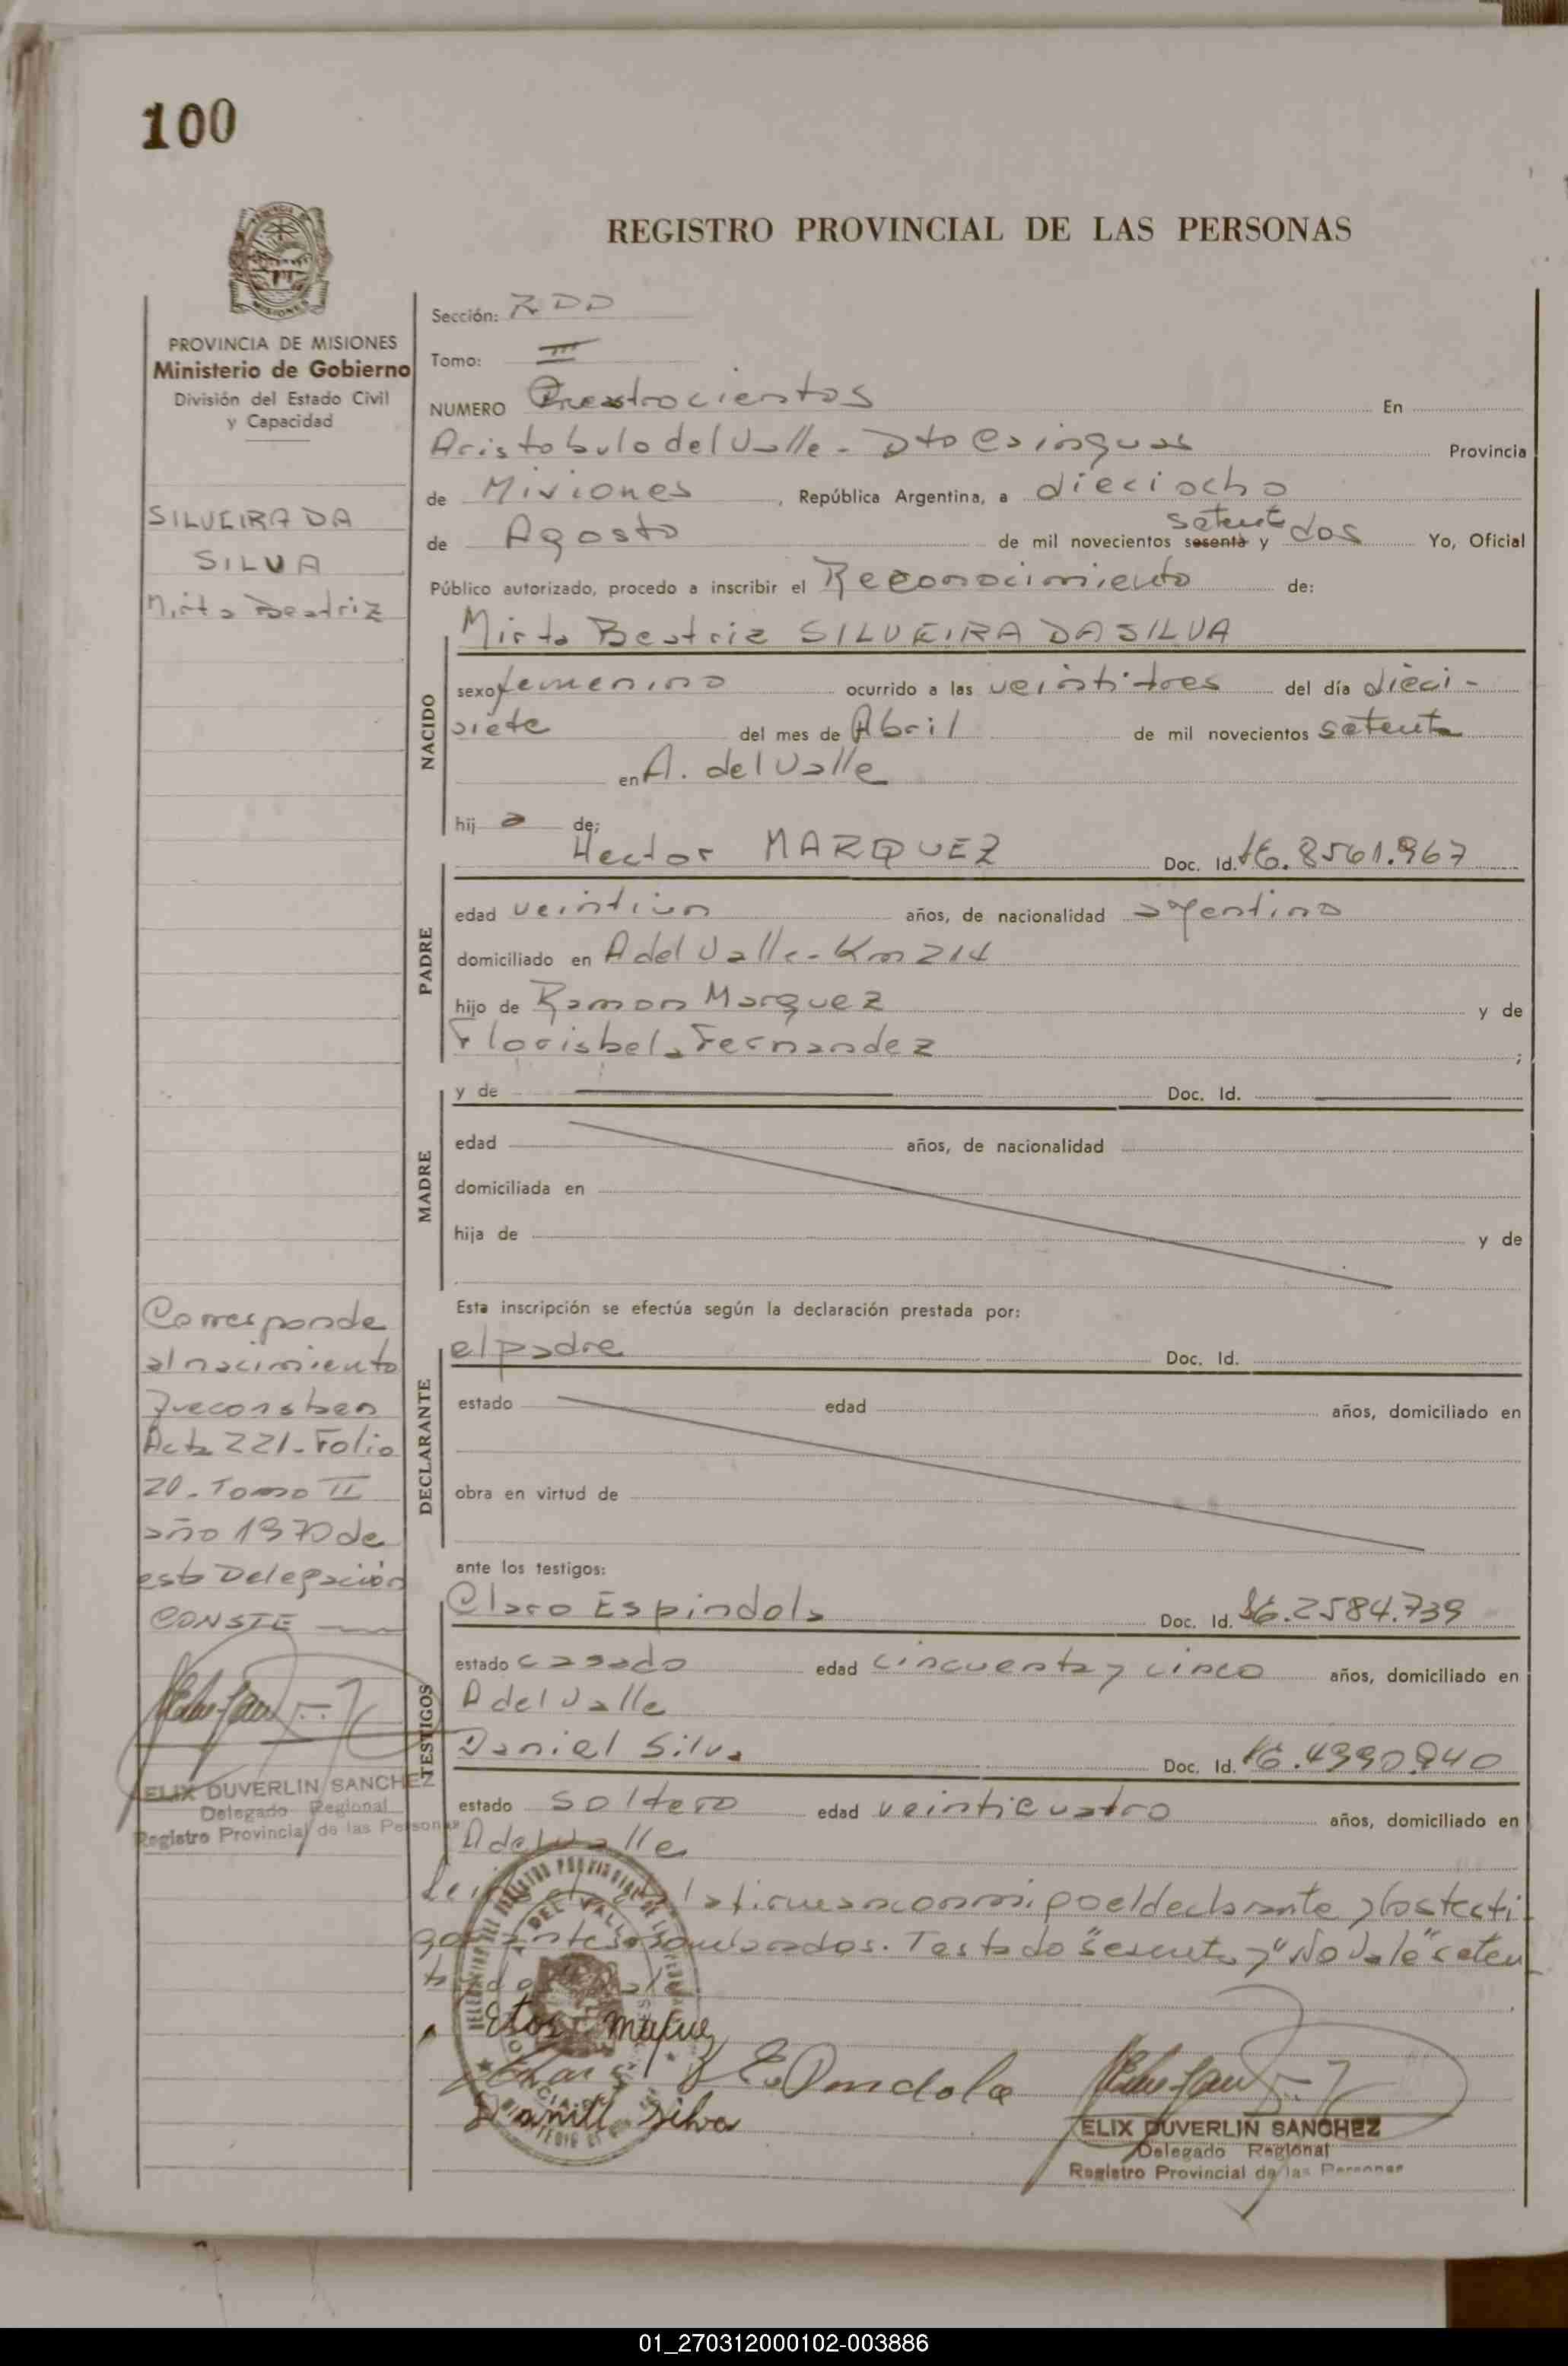 100
REGISTRO PROVINCIAL DE LAS PERSONAS
PROVINCIA DE MISIONES
Ministerio de Gobierno
División del Estado Civil
y Capacidad
SILVEIRA DA
SILVA
Mirta Beatriz
Sección:
Tomo: III
NUMERO En
Aristobulo del Valle - Dto Cainguas Provincia
de Misiones, República Argentina, a dieciocho
de Agosto de mil novecientos sesenta y setenta dos Yo, Oficial
Público autorizado, procedo a inscribir el Reconocimiento de:
Mirta Beatriz SILVEIRA DA SILVA
NACIDO
sexo femenino ocurrido a las veintitres del día dieci-
siete del mes de Abril de mil novecientos setenta
en A. del Valle
hij a de;
PADRE
Hector MARQUEZ Doc. Id. 8561.967
edad veintiun años, de nacionalidad argentino
domiciliado en A del Valle - Km 214
hijo de Ramon Marquez y de
Florisbela Fernandez ;
MADRE
y de Doc. Id.
edad años, de nacionalidad
domiciliada en
hija de y de
Esta inscripción se efectúa según la declaración prestada por:
DECLARANTE
el padre Doc. Id.
estado edad años, domiciliado en
obra en virtud de
ante los testigos:
TESTIGOS
Claro Espindola Doc. Id. 2584.739
estado casado edad cincuenta y cinco años, domiciliado en
A del Valle
Daniel Silva Doc. Id. 4990.940
estado soltero edad veinticuatro años, domiciliado en
A del Valle
el declarante y los testi-
gos Testado "sesenta y" No Vale "seten-
Corresponde
al nacimiento
que consta en
Acta 221 - Folio
20 - Tomo II
año 1970 de
esta Delegación
CONSTE
ELIX DUVERLIN SANCHEZ
Delegado Regional
Registro Provincial de las Personas
Daniel Silva
ELIX DUVERLIN SANCHEZ
Delegado Regional
Registro Provincial de las Personas
01_270312000102-003886